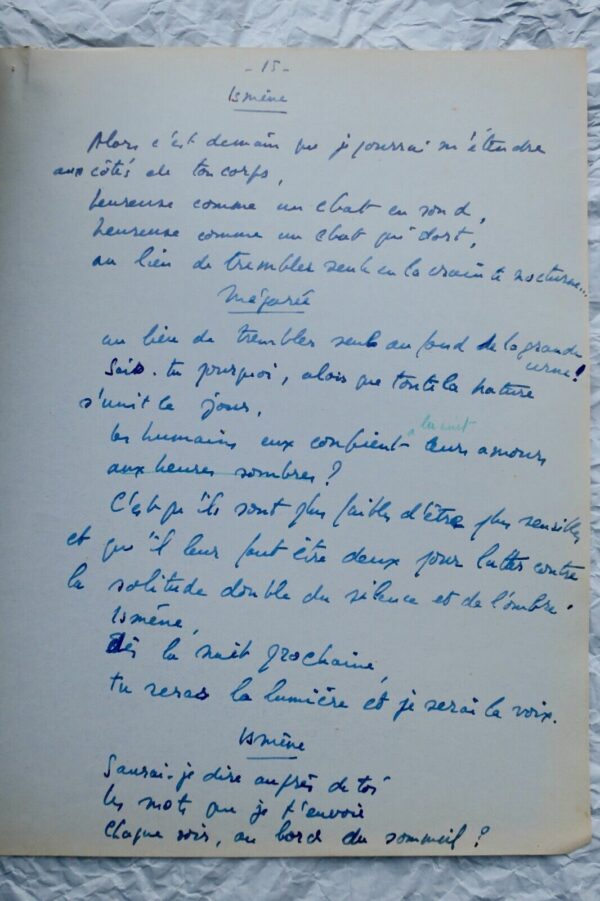 - 15 -
Ismène
Alors c'est demain que je pourrai m'étendre
aux côtés de ton corps,
heureuse comme un chat en rond,
heureuse comme un chat qui dort,
au lieu de trembler seule en la crainte nocturne...
Mégarée
au lieu de trembler seule au fond de la grande
urne!
Sais-tu pourquoi, alors que toute la nature
s'unit le jour,
la nuit
les humains eux confient leurs amours
aux heures sombres?
C'est qu'ils sont plus faibles d'être plus sensibles
et qu'il leur faut être deux pour lutter contre
la solitude double du silence et de l'ombre.
Ismène,
Dès la nuit prochaine,
tu seras la lumière et je serai la voix.
Ismène
Saurai-je dire auprès de toi
les mots que je t'envoie
chaque soir, au bord du sommeil?